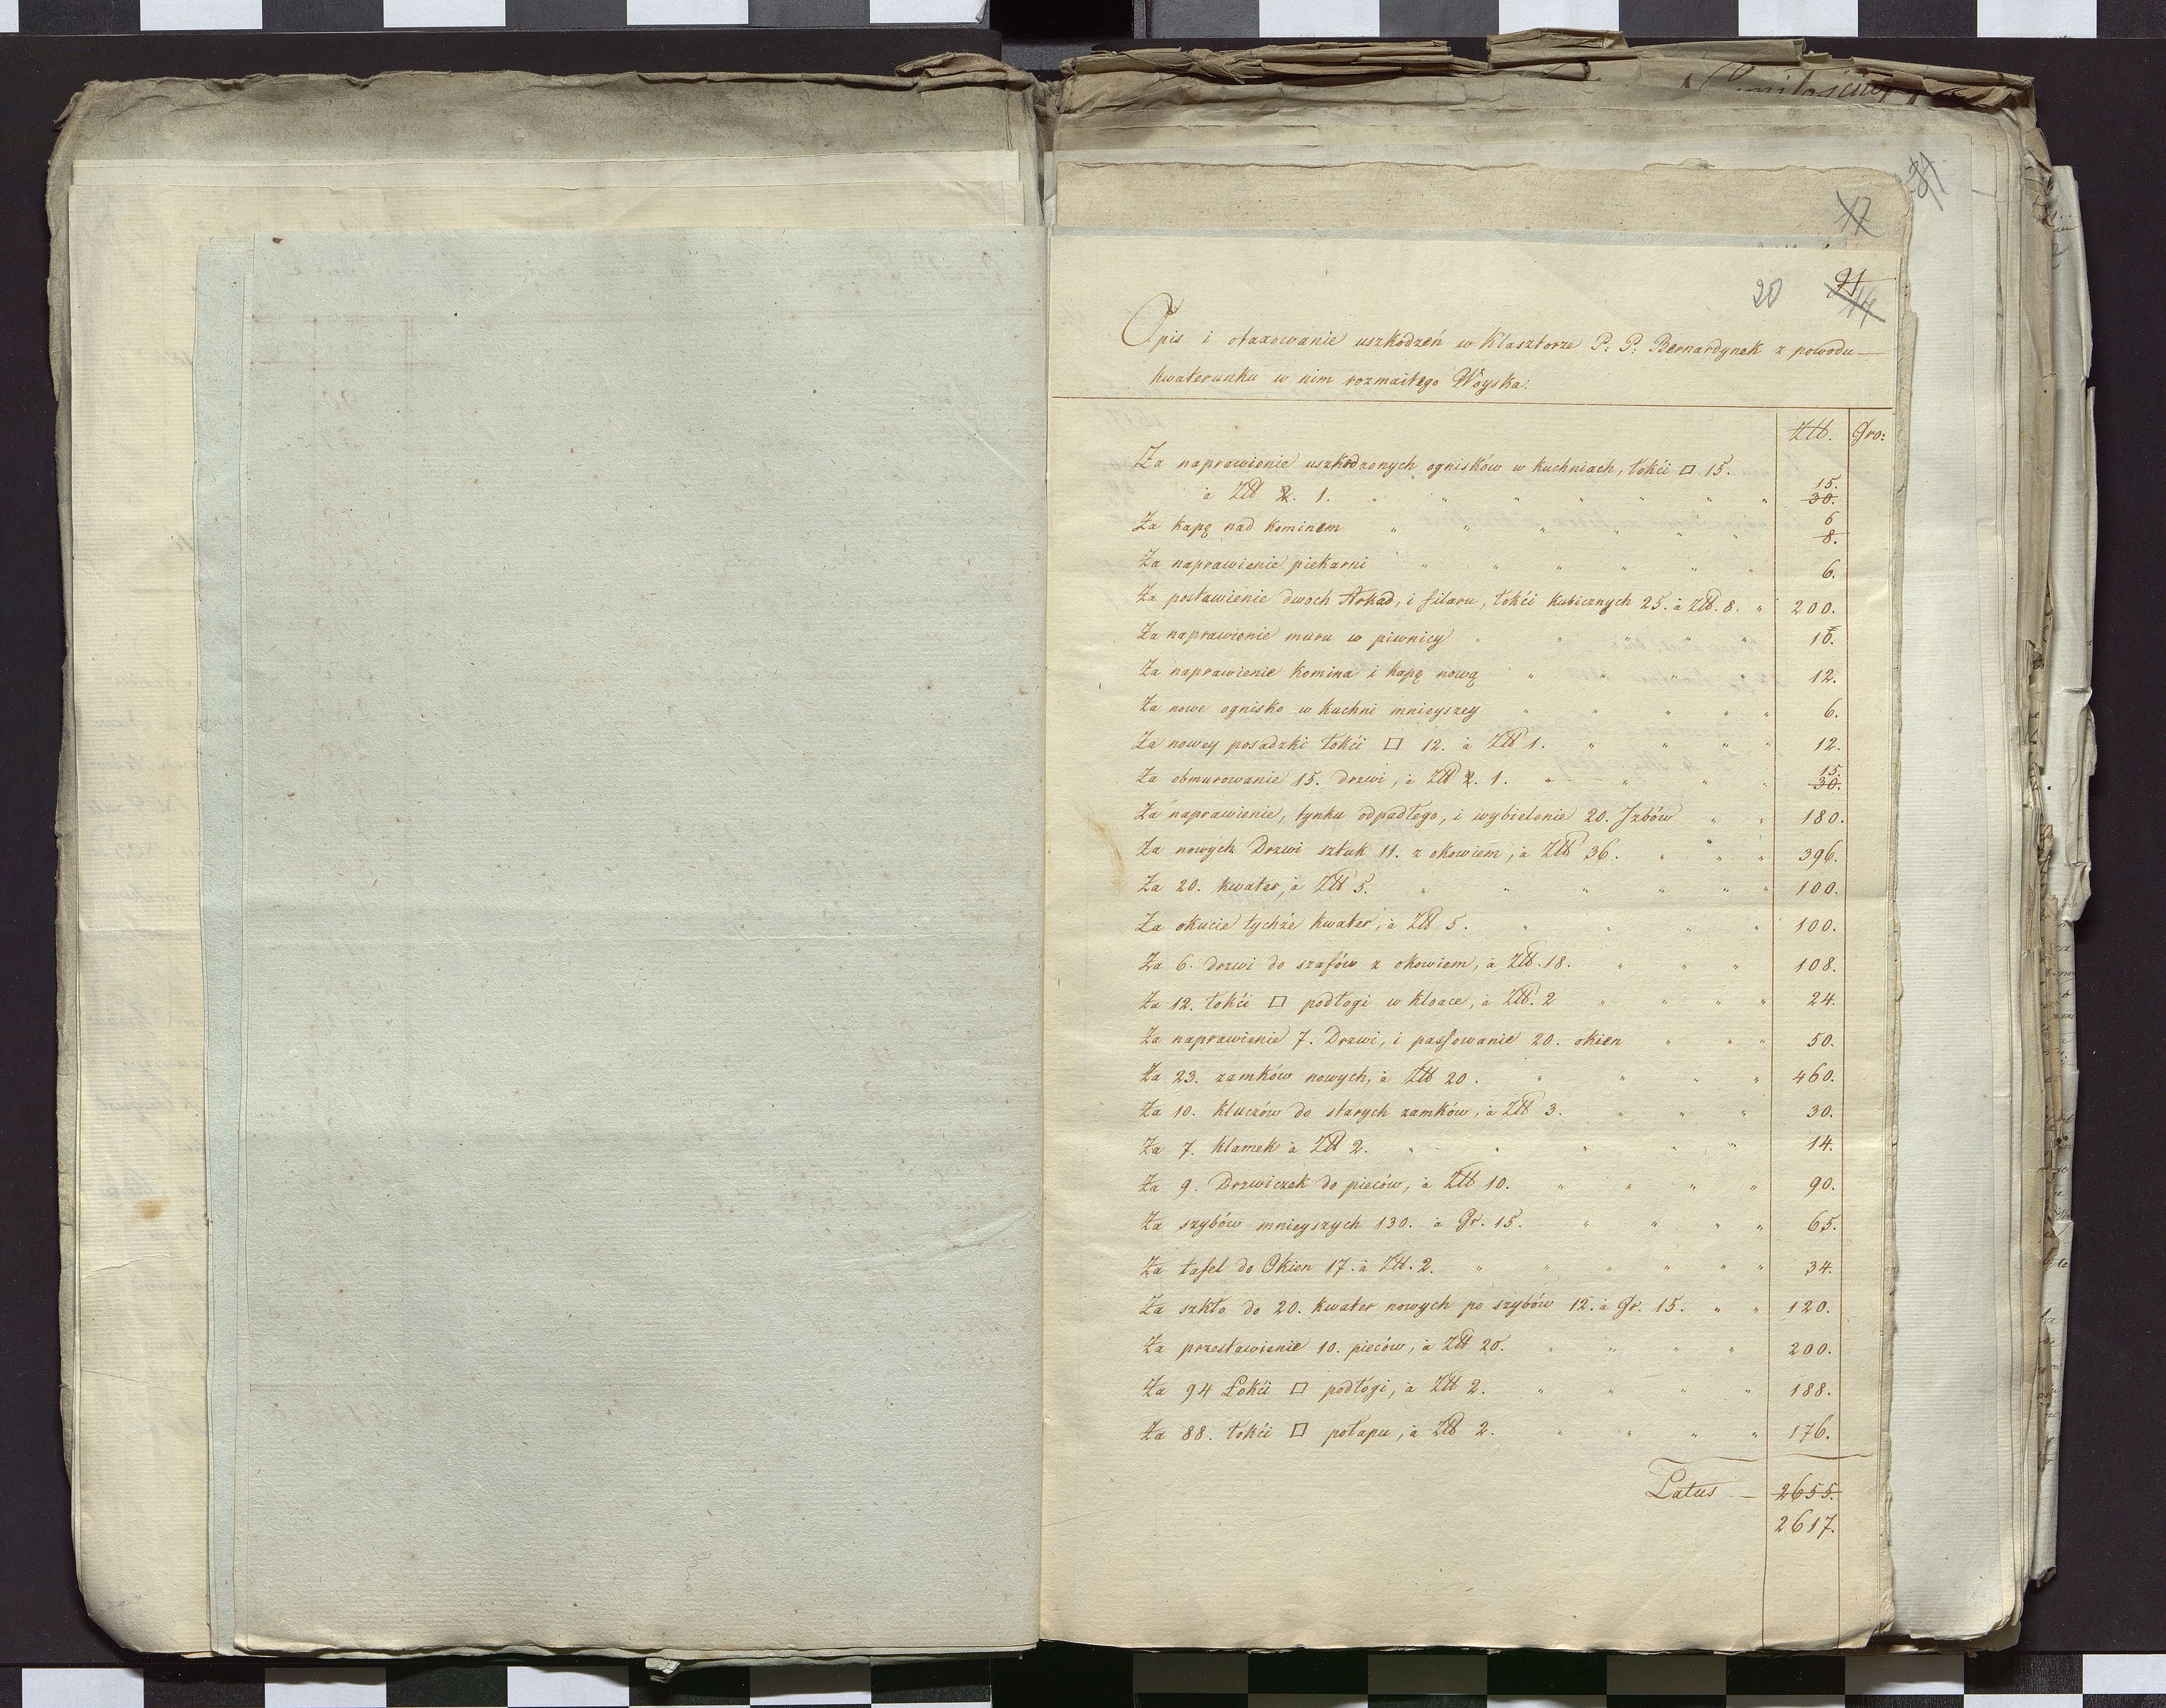 17
20 21 14
Opis i otaxowanie uszkodzeń w Klasztorze P: P: Bernardynek z powodu
kwaterunku w nim rozmaitego Woyska.
Złł. Gro:
Za naprawienie uszkodzonych ognisków w kuchniach, łokći □ 15.
à Złł 2. 1. " " " " " " " 15. 30.
Za kapę nad kominem " " " " " " 6 8.
Za naprawienie piekarni " " " " " " 6.
Za postawienie dwoch Arkad, i filaru, łokći kubicznych 25. à Złł. 8. " 200.
Za naprawienie muru w piwnicy " " " " " 16.
Za naprawienie komina i kapę nową " " " " 12.
Za nowe ognisko w kuchni mnieyszey " " " " " 6.
Za nowey posadzki łokći □ 12. à Złł 1. " " " " 12.
Za obmurowanie 15. drzwi, à Złł 2. 1. " " " " 15. 30.
Za naprawienie, tynku odpadłego, i wybielenie 20. Jzbów " " 180.
Za nowych Drzwi sztuk 11. z okowiem, à Złł 36. " " " 396.
Za 20. kwater, à Złł 5. " " " " " " 100.
Za okucie tychże kwater, à Złł 5. " " " " 100.
Za 6. drzwi do szafów z okowiem, à Złł. 18. " " " 108.
Za 12. łokći □ podłogi w kloace, à Złł. 2 " " " " 24.
Za naprawienie 7. Drzwi, i passowanie 20. okien " " " 50.
Za 23. zamków nowych, à Złł 20. " " " " 460.
Za 10. kluczów do starych zamków, à Złł 3. " " " 30.
Za 7. klamek à Złł 2. " " " " " 14.
Za 9. Drzwiczek do pieców, à Złł 10. " " " " 90.
Za szybów mnieyszych 130. à Gr. 15. " " " " 65.
Za tafel do Okien 17. à Złł. 2. " " " " " " 34.
Za szkło do 20. kwater nowych po szybów 12. à Gr. 15. " " 120.
Za przestawienie 10. pieców, à Złł 20. " " " " 200.
Za 94 Łokći □ podłogi, à Złł 2. " " " " 188.
Za 88. łokći □ połapu, à Złł 2. " " " " 176.
Latus — 2655.
2617.